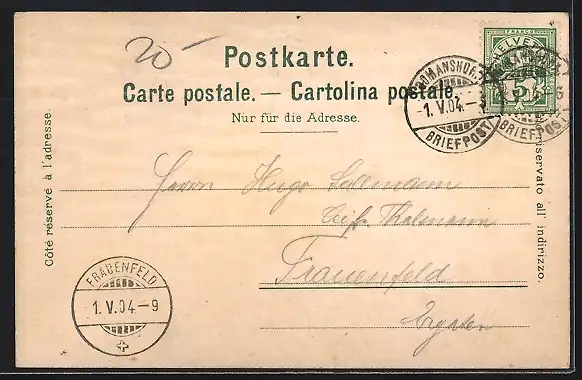 20-
Postkarte.
Carte postale. — Cartolina postale.
Nur für die Adresse.
HELVETIA
FRANCO
5
ROMANSHORN
-1. V. 04. -
BRIEFPOST
BRIEFPOST
Côté réservé à l'adresse.
riservato all' indirizzo.
Herrn Hugo
Frauenfeld
Ergaten
FRAUENFELD
1. V. 04 - 9